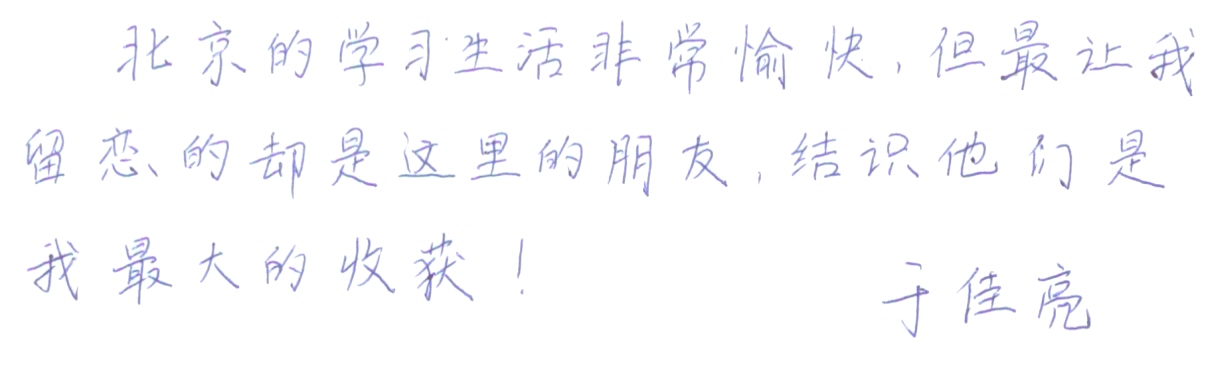 北京的学习生活非常愉快，但最让我
留恋的却是这里的朋友，结识他们是
我最大的收获！
于佳亮